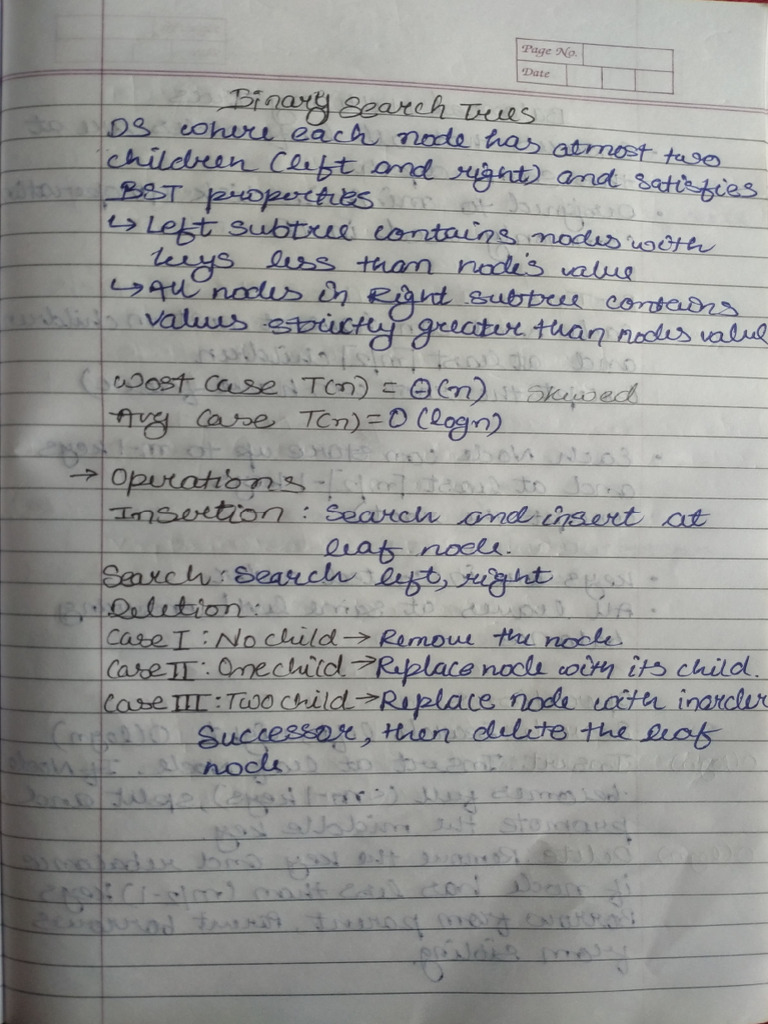 Page No.
Date
Binary Search Trees
DS where each node has atmost two
children (left and right) and satisfies
BST properties
↳ Left subtree contains nodes with
keys less than node's value
↳ All nodes in Right subtree contains
values strictly greater than nodes value
Wost Case : T(n) = Θ(n) Skiwed
Avg Case T(n) = O(logn)
→ Operations
Insertion : Search and insert at
leaf node.
Search : Search left, right
Deletion :
Case I : No child → Remove the node
Case II : One child → Replace node with its child.
Case III : Two child → Replace node with inorder
successor, then delete the leaf
node